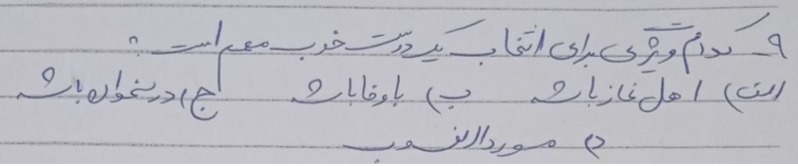 ۹_ کدام ویژگی برای انتخاب یک دوست خوب مهم است؟
الف) اهل نماز باشد ب) باوفا باشد ج) درسخوان باشد
د) مورد الف و ب